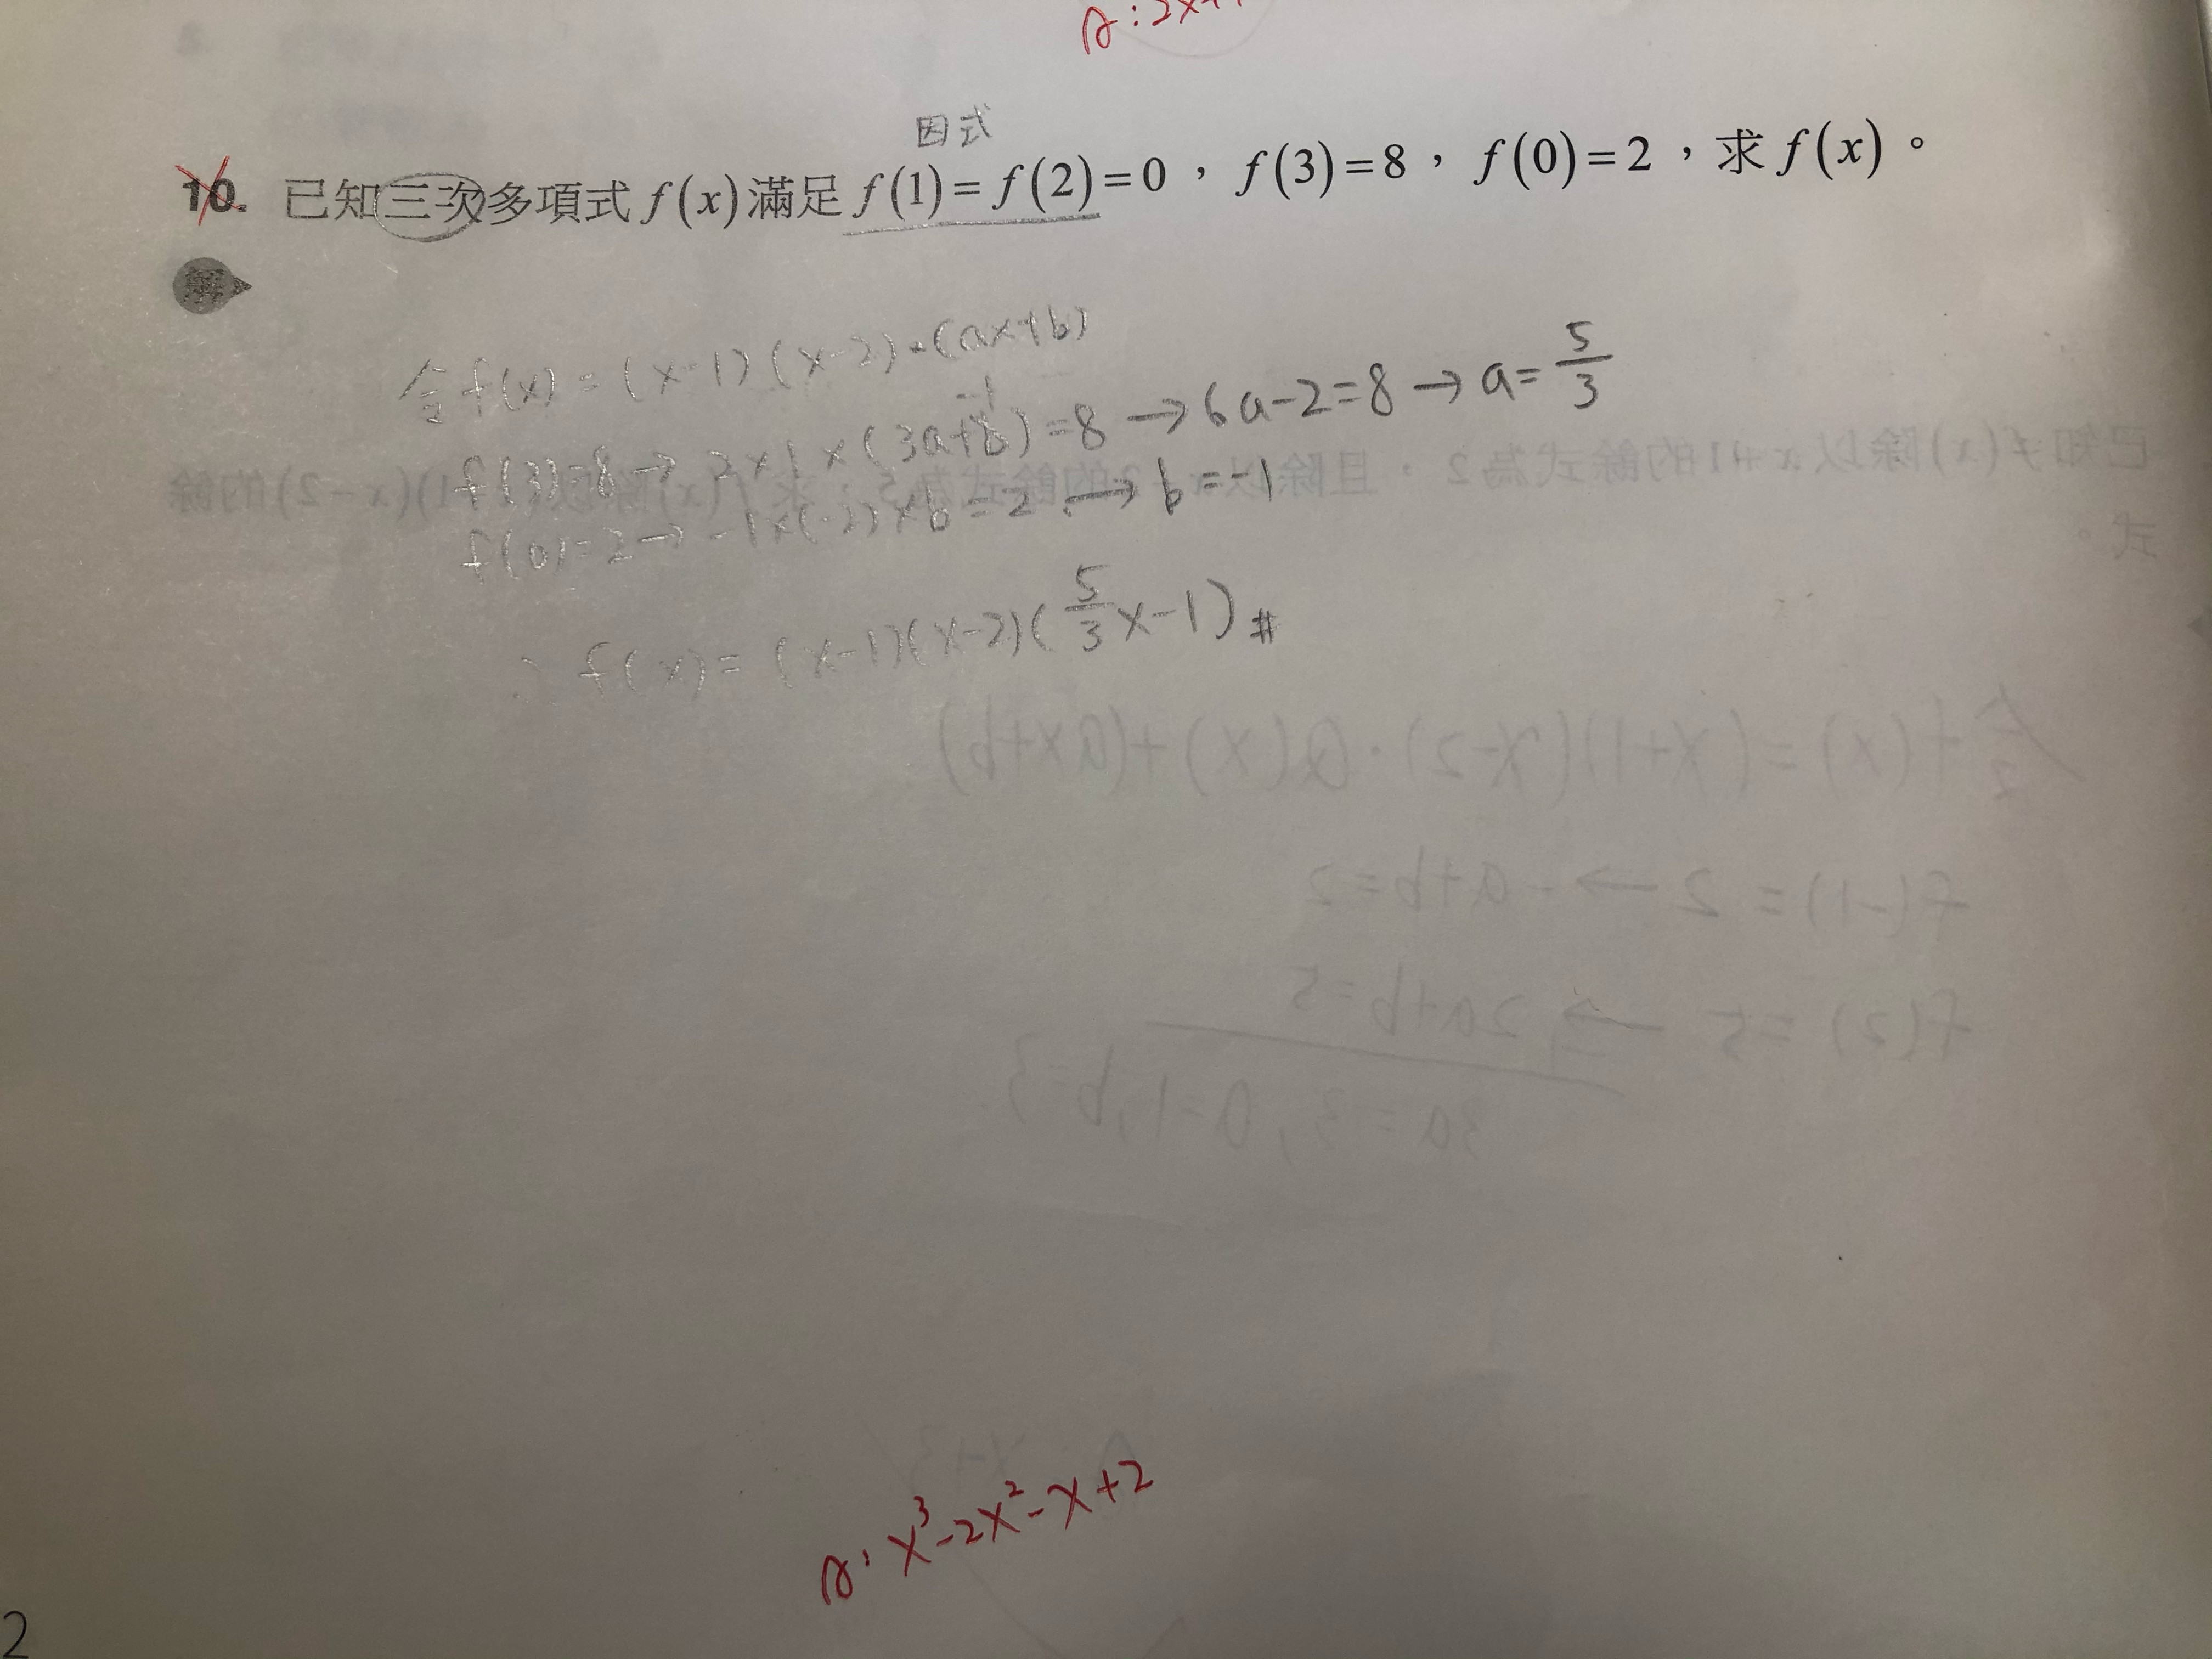 A:2x+
因式
10. 已知三次多項式 f(x) 滿足 f(1)=f(2)=0，f(3)=8，f(0)=2，求 f(x)。
解
令f(x)=(x-1)(x-2)·(ax+b)
-1
f(3)=8→2×1×(3a+b)=8→6a-2=8→a=5/3
f(0)=2→-1×(-2)×b=2→b=-1
∴ f(x)=(x-1)(x-2)(5/3x-1)#
A:x³-2x²-x+2
2